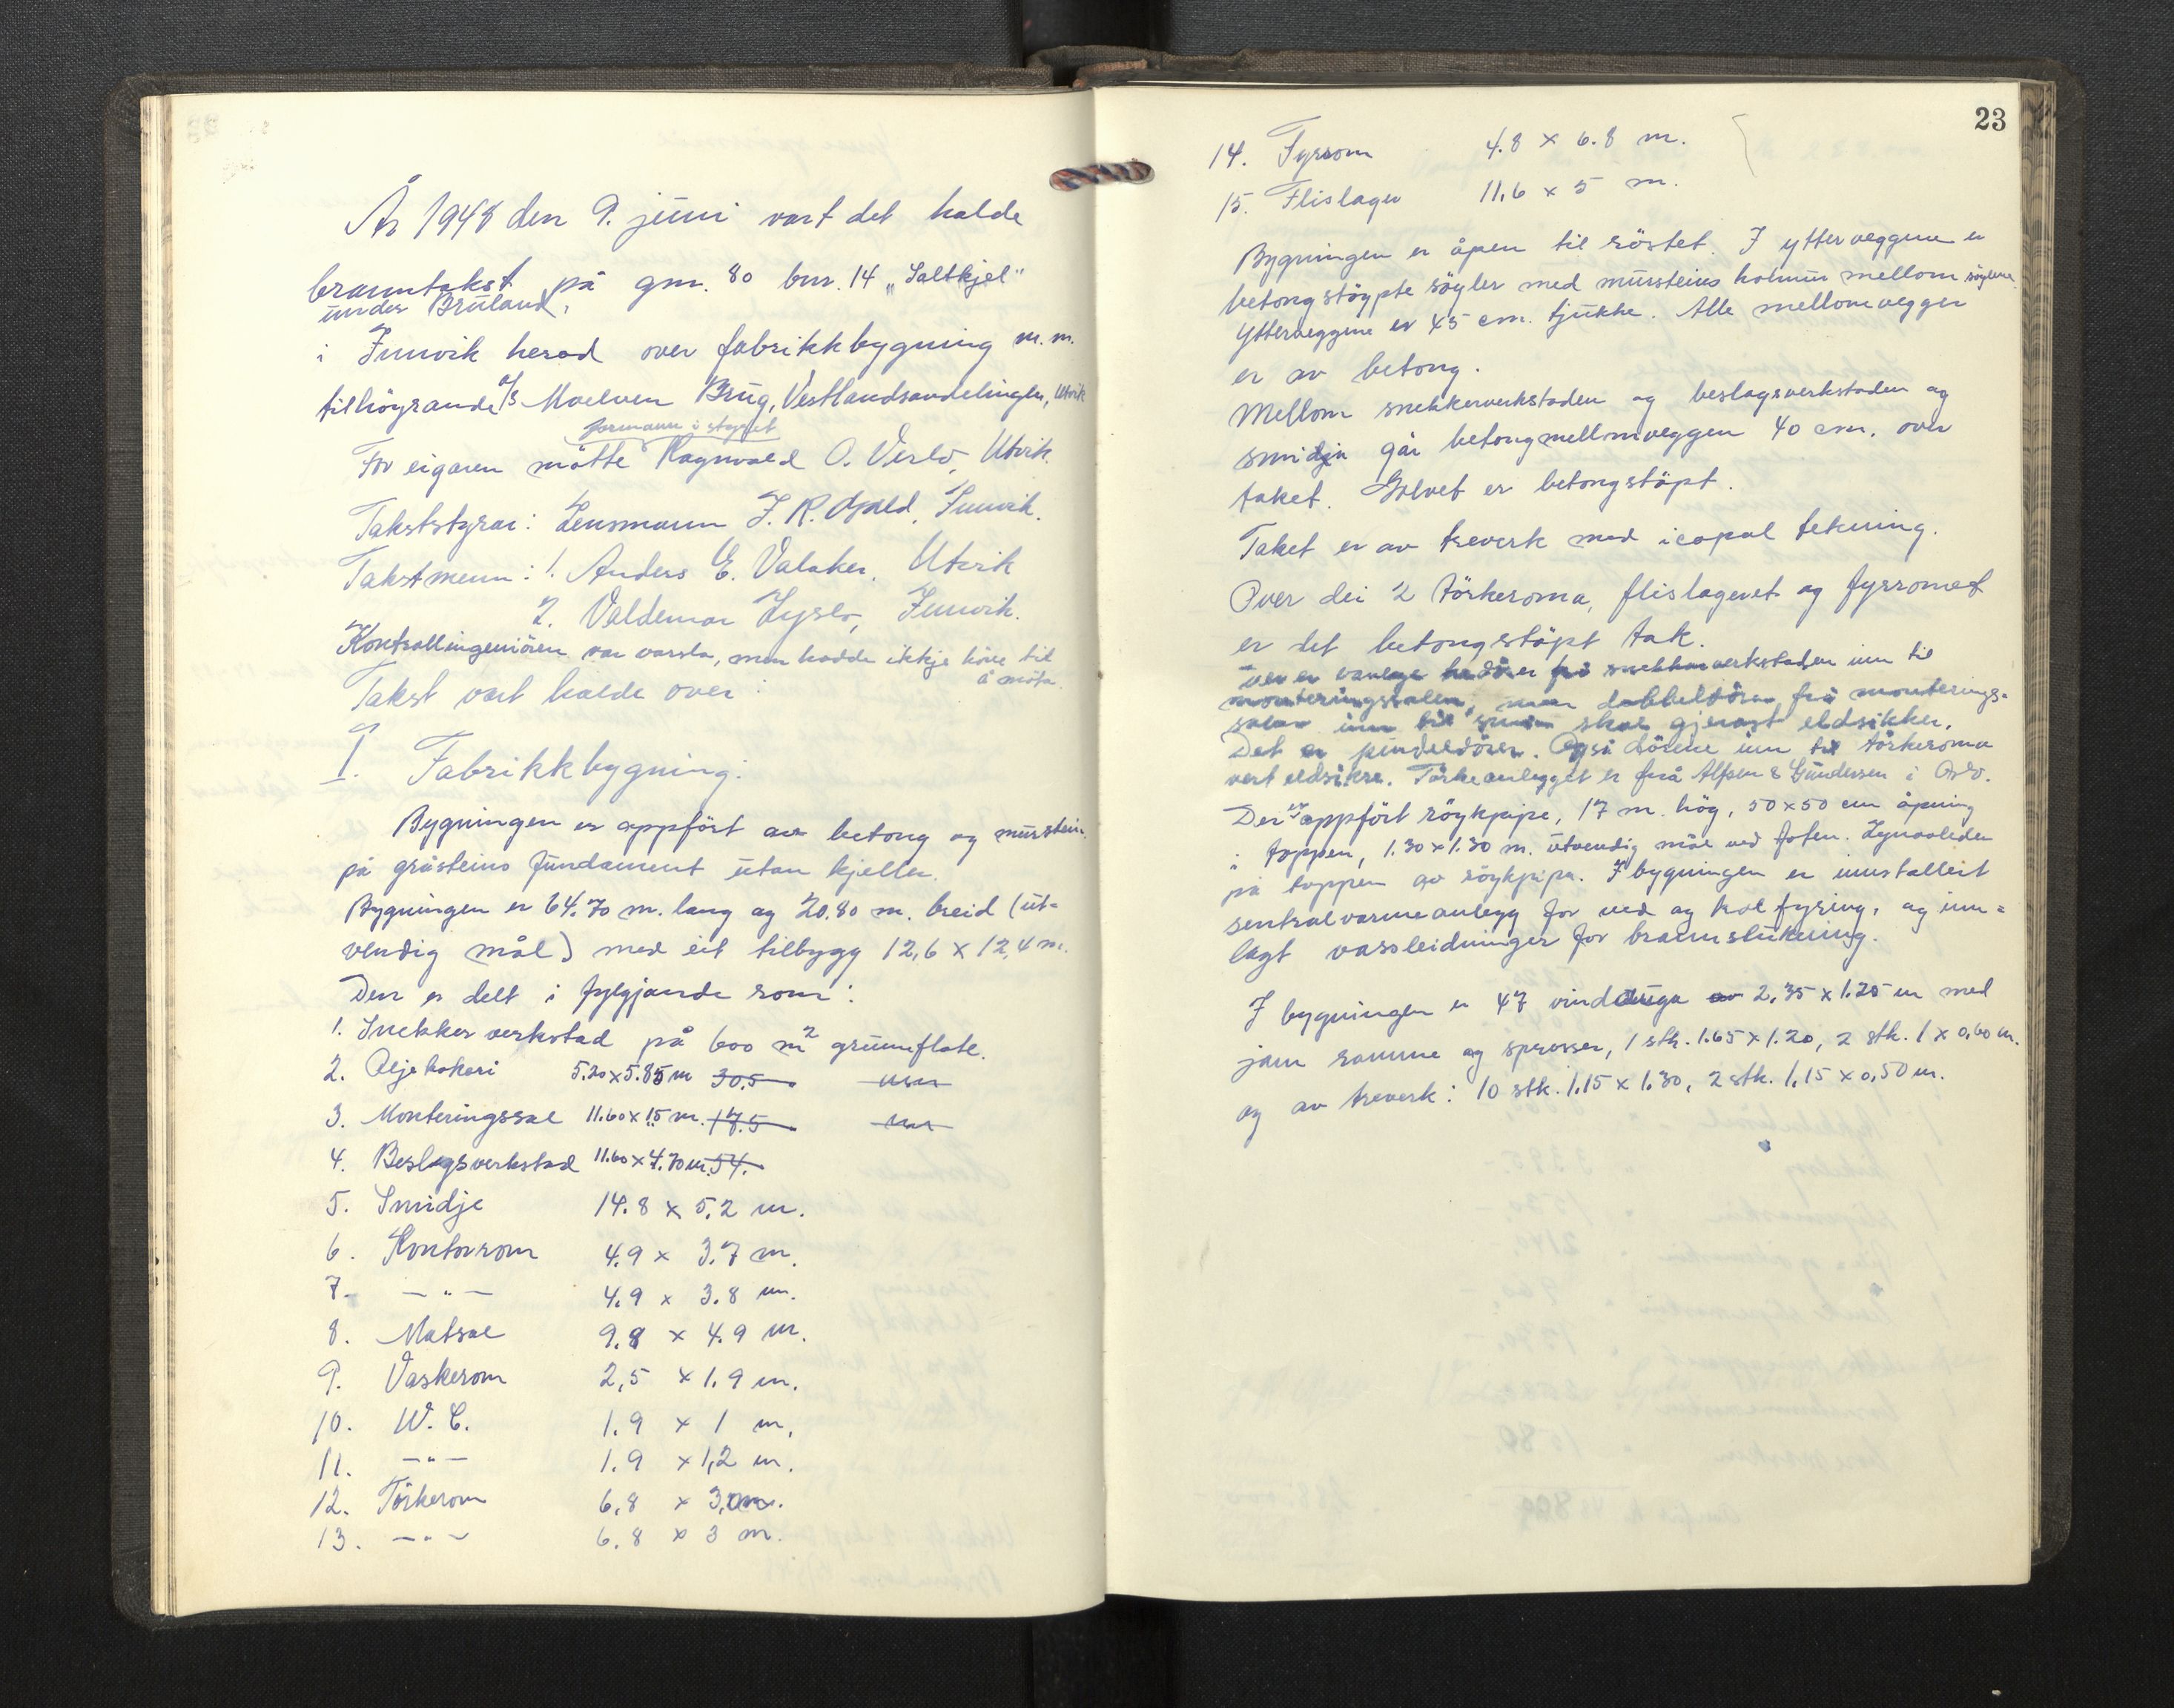 År 1948 den 9. juni vart det halde
branntakst på gnr. 80 bnr. 14 „Saltkjel"
under Bruland,
i Innvik herad over fabrikkbygning m.m.
tilhöyrande A/S Moelven Brug, Vestlandsavdelingen, Utvik
formann i styret
For eigaren møtte Ragnvald O. Verlo, Utvik.
Takststyrar: Lensmann J. R. Opald, Innvik.
Takstmenn: 1. Anders E. Valaker, Utvik
2. Valdemar Lyslo, Innvik.
Kontrollingeniören var varsla, men hadde ikkje höve til
å möta.
Takst vart halde over:
I. Fabrikkbygning:
Bygningen er oppfört av betong og murstein
på gråsteins fundament utan kjeller.
Bygningen er 64.70 m. lang og 20.80 m. breid (ut-
vendig mål) med eit tilbygg 12,6 x 12,4 m.
Den er delt i fylgjande rom:
1. Snekkerverkstad på 600 m2 grunnflate.
2. Oljekokeri 5.20 x 5.85 m 30,5 -"-
3. Monteringssal 11.60 x 15 m. 17.5 -"-
4. Beslagsverkstad 11.60 x 4.70 m. 54.
5. Smidje 14.8 x 5.2 m.
6. Kontorrom 4.9 x 3.7 m.
7. -"- 4.9 x 3.8 m.
8. Matsal 9.8 x 4.9 m.
9. Vaskerom 2,5 x 1.9 m.
10. W.C. 1.9 x 1 m.
11. -"- 1.9 x 1,2 m.
12. Törkerom 6,8 x 3,0 m.
13. -"- 6.8 x 3 m.
23
14. Fyrrom 4.8 x 6.8 m.
15. Flislager 11.6 x 5 m.
Bygningen er åpen til röstet. I ytterveggene er
betongstöypte söyler med mursteins holmur mellom söylene
Ytterveggene er 45 cm. tjukke. Alle mellomvegger
er av betong.
Mellom snekkerverkstaden og beslagsverkstaden og
smidja går betongmellomveggen 40 cm. over
taket. Golvet er betongstöpt.
Taket er av treverk med icopal tekning.
Over dei 2 törkeroma, flislageret og fyrromet
er det betongstöpt tak.
Der er vanlege tredörer frå snekkerverkstaden inn til
monteringssalen, men dobbeldören frå monterings-
salen inn til smien skal gjerast eldsikker.
Det er pendeldörer. Også dörene inn til törkeroma
vert eldsikre. Törkeanlegget er frå Alfsen & Gundersen i Oslo.
Der er oppfört röykpipe, 17 m. hög, 50 x 50 cm åpning
i toppen, 1.30 x 1.30 m. utvendig mål ved foten. Lynavleder
på toppen av röykpipa. I bygningen er innstallert
sentralvarmeanlegg for ved og kol fyring, og inn=
lagt vassleidninger for brannslukning.
I bygningen er 47 vindauga av 2,35 x 1.25 m med
jarn ramme og sprosser, 1 stk. 1.65 x 1.20, 2 stk. 1 x 0,60 m.
og av treverk: 10 stk. 1.15 x 1.30, 2 stk. 1,15 x 0,50 m.